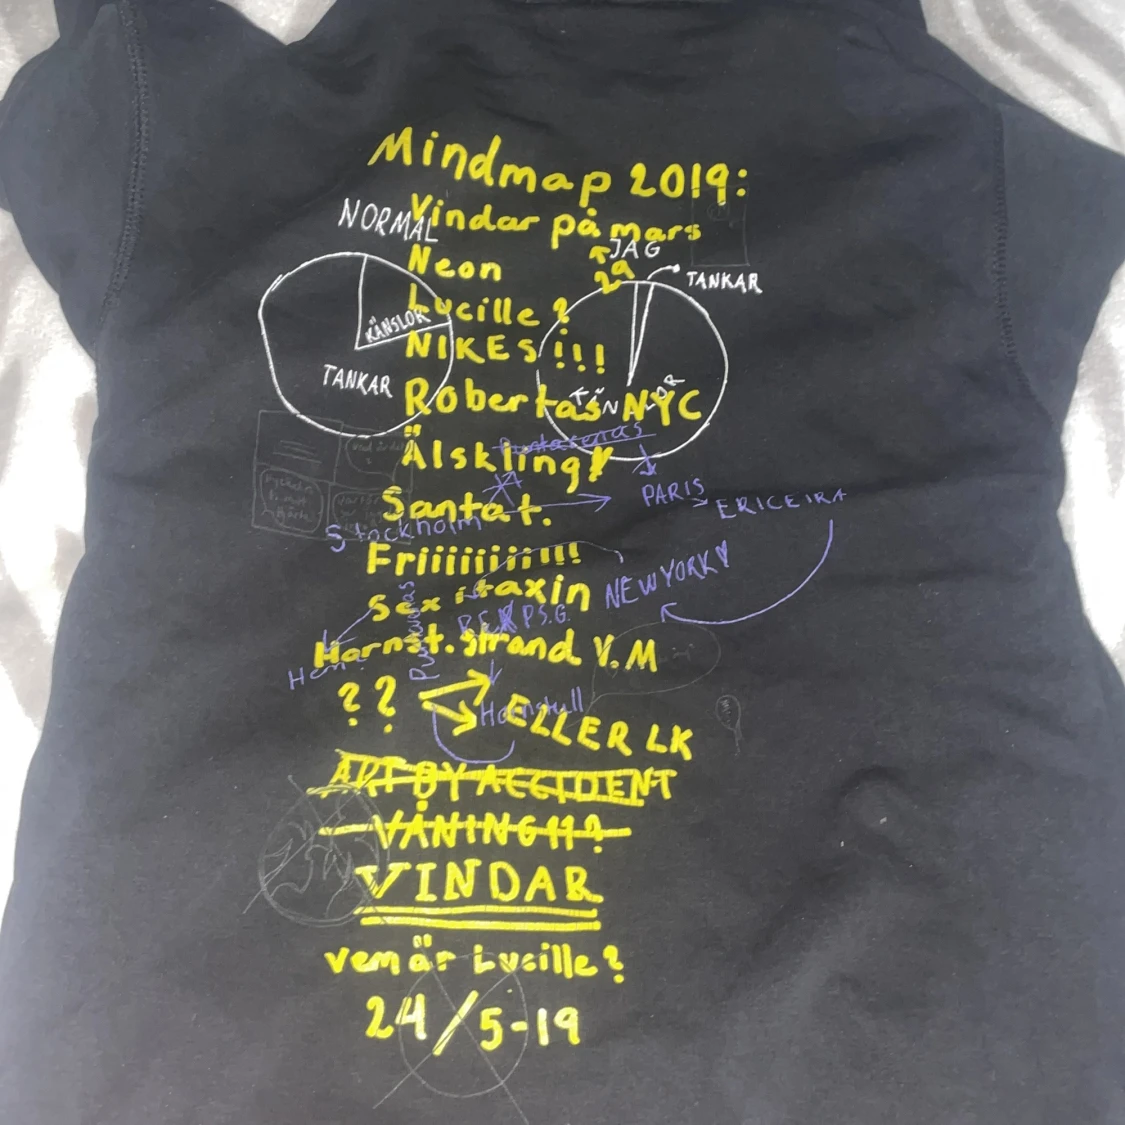 Mindmap 2019:
NORMAL
Vindar på mars
JAG
2a
Neon
TANKAR
Lucille?
KÄNSLOR
NIKES!!!
TANKAR
Robertas NYC
Puntarenas
Älskling!
PARIS
ERICEIRA
Santat.
Stockholm
Friiiiiiiii!!!
NEW YORK
Sex i taxin
P.S.G.
Hornst. strand V.M
??
Hornstull
ELLER LK
ART BY ACCIDENT
VÅNING 11?
VINDAR
vem är Lucille?
24/5-19